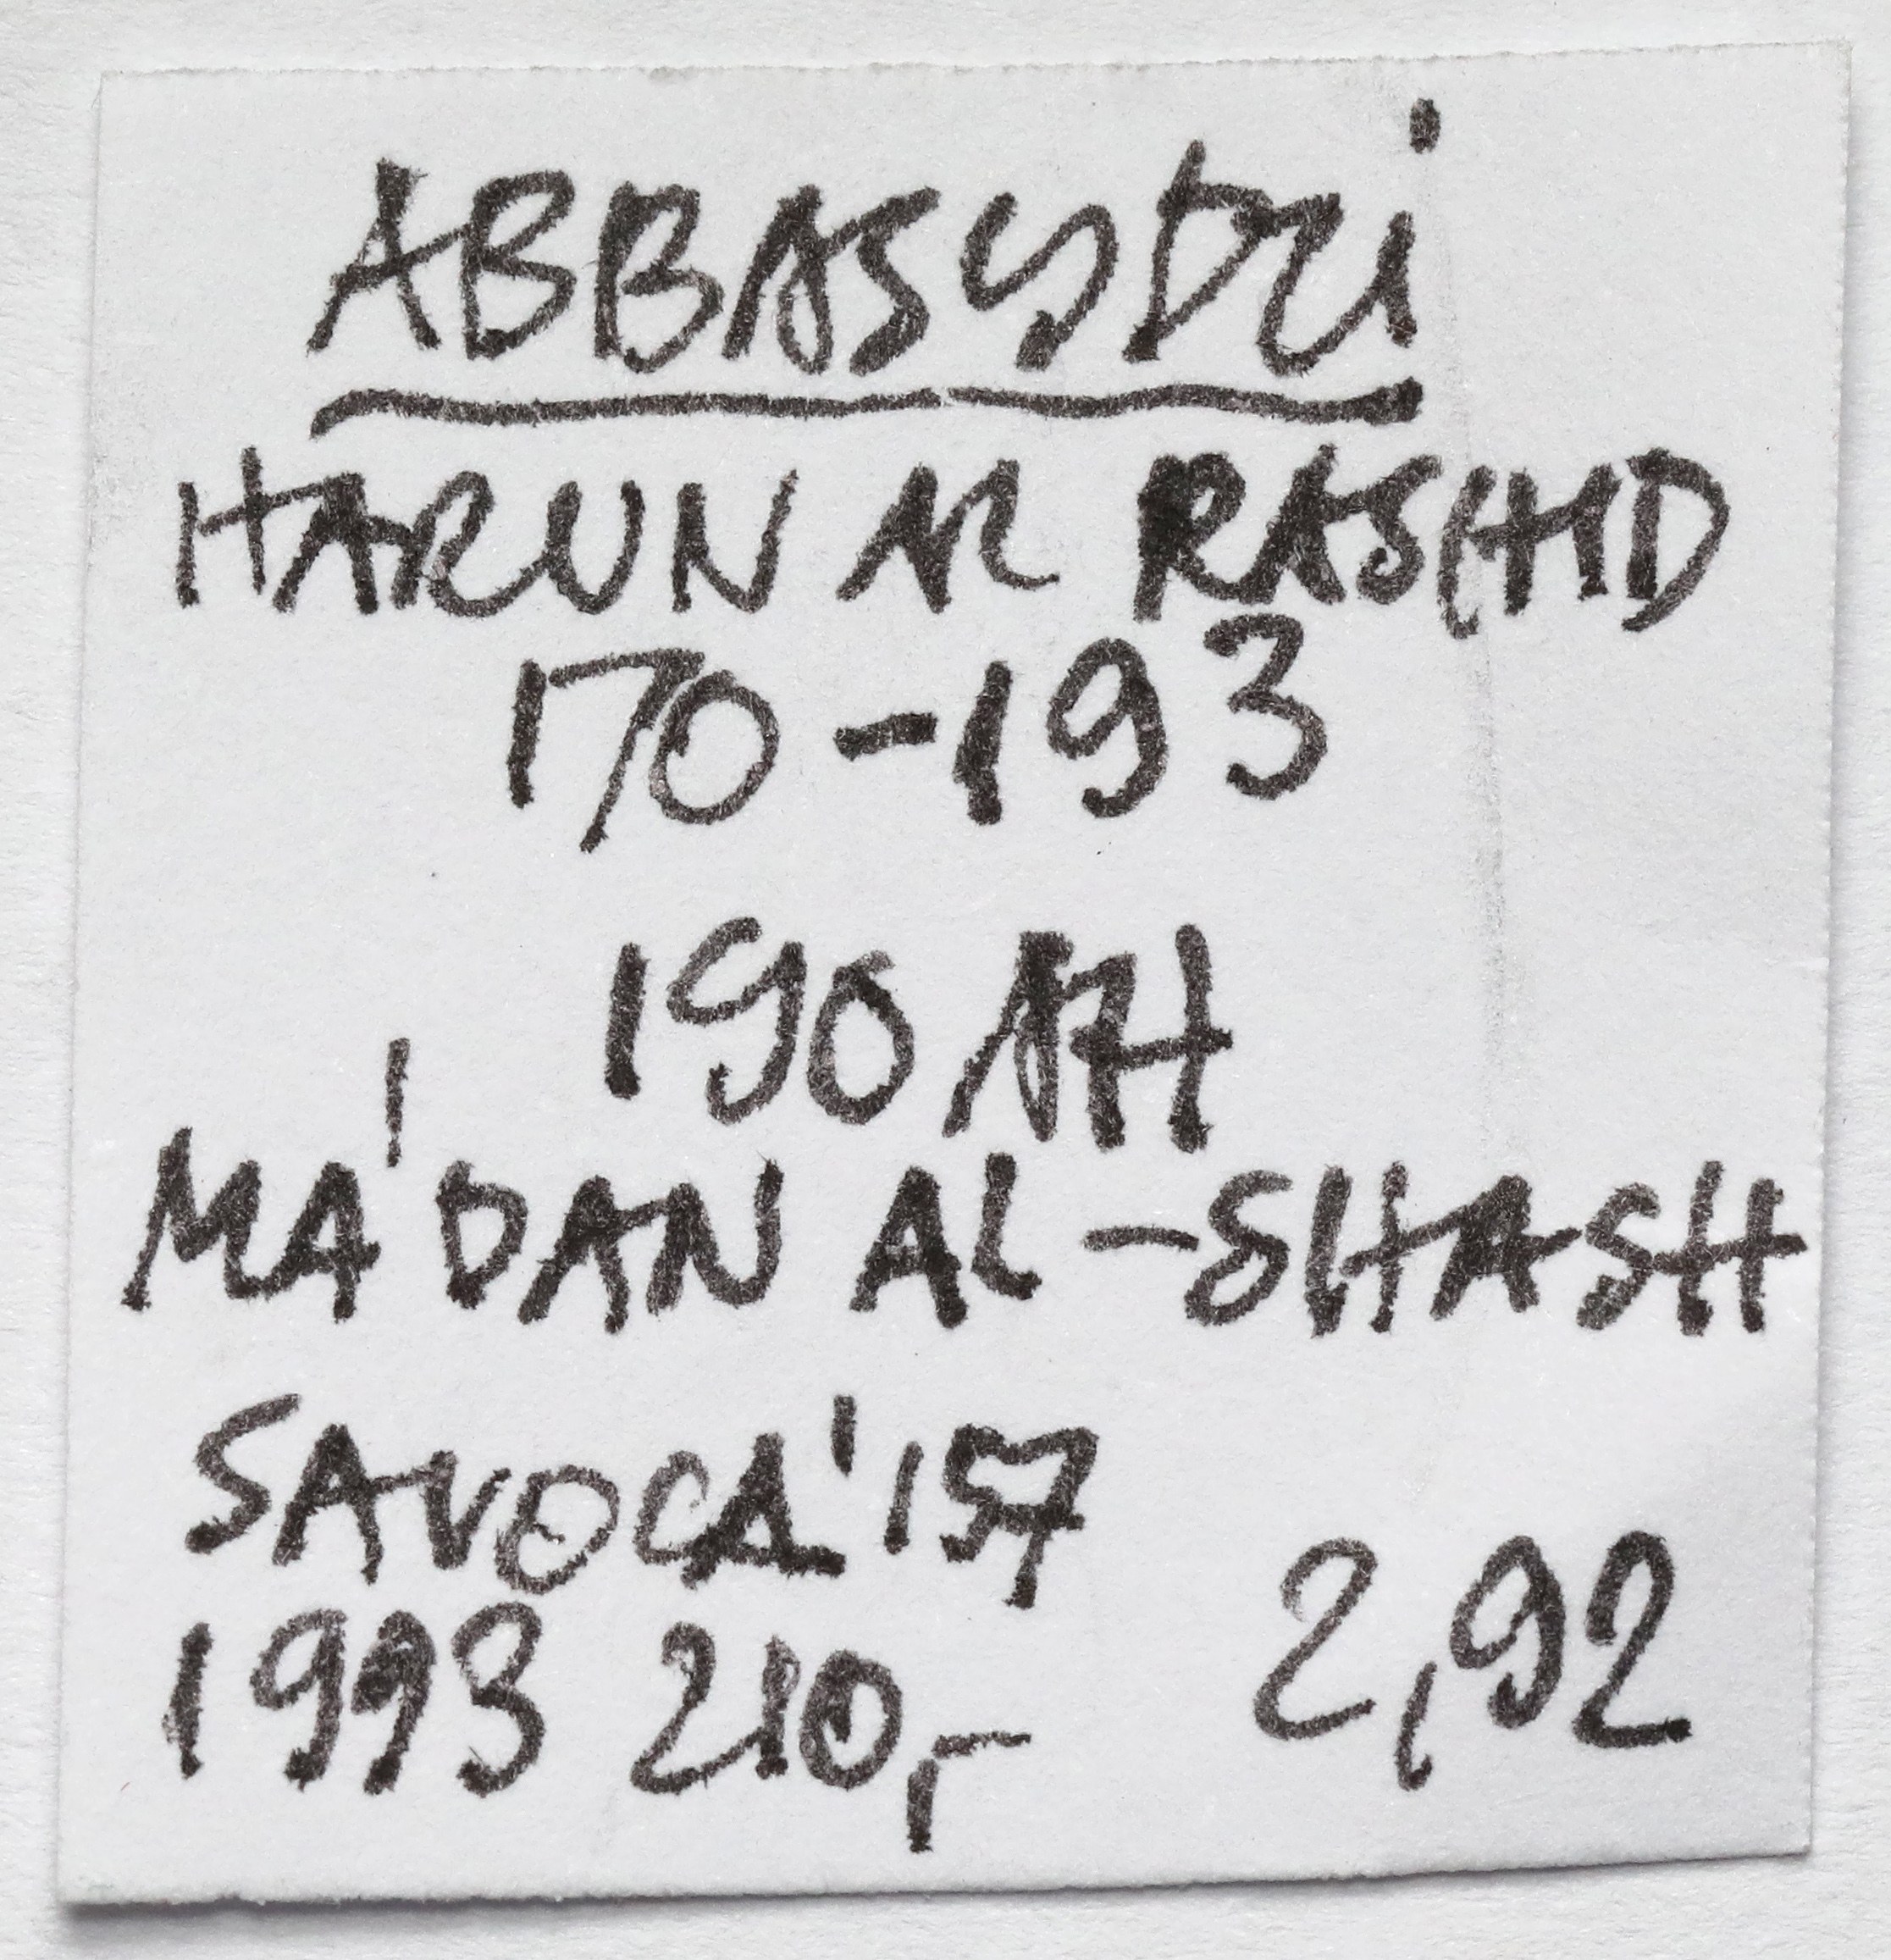 ABBASYDZI
HARUN AL RASCHID
170-193
190 AH
MA'DAN AL-SHASH
SAVOCA '157
1993 210,- 2,92